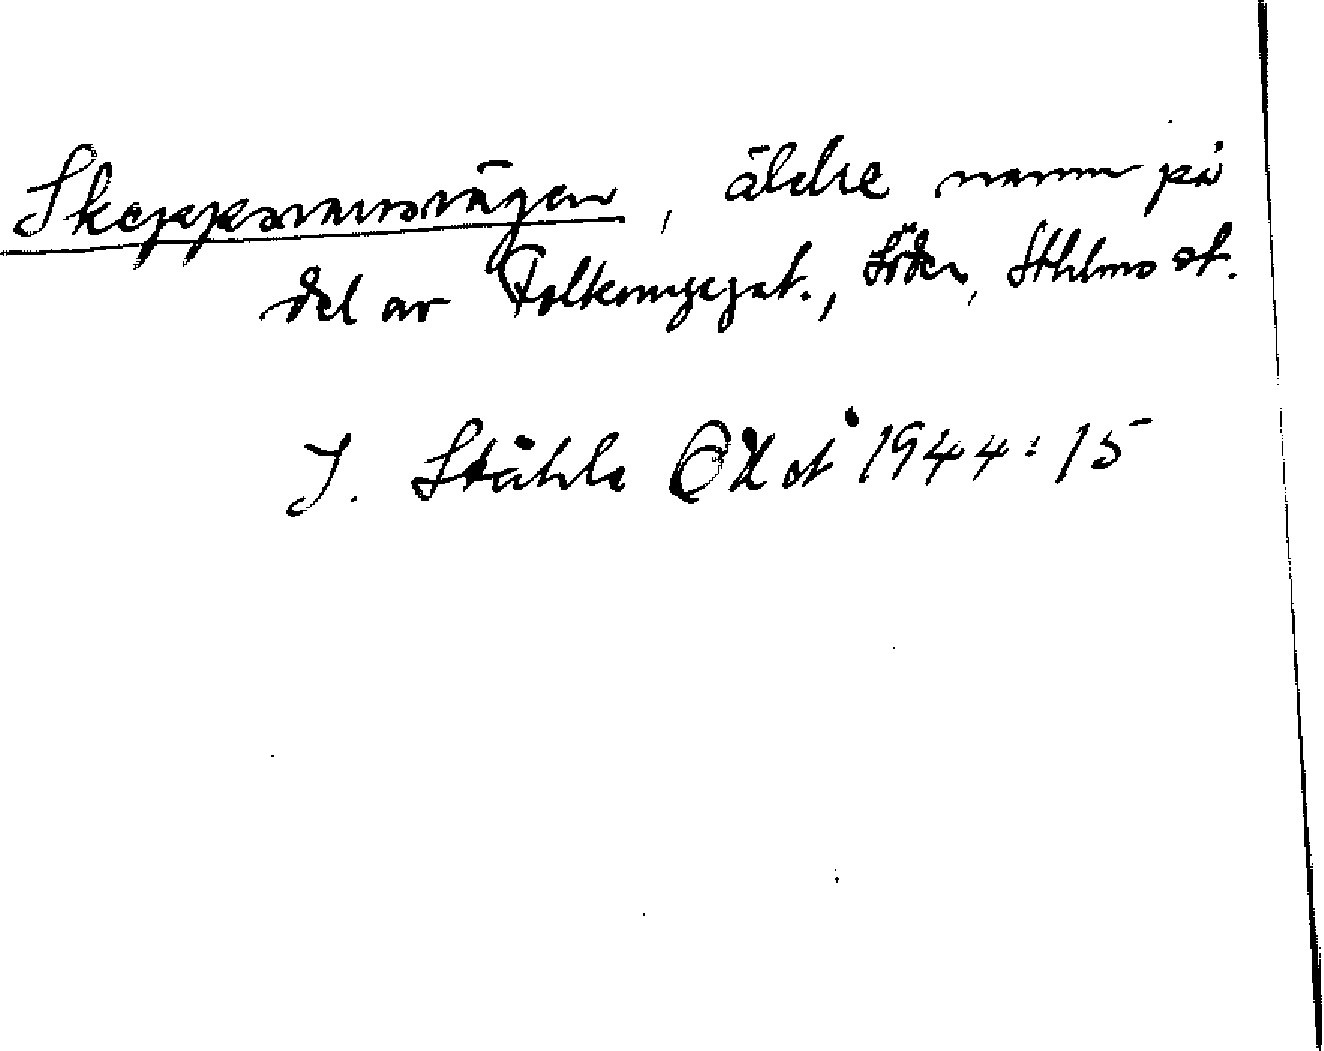 Skeppsmansvägen, äldre namn på
del av Folkungagat., Söder, Sthlms st.
I. Ståhle 1944: 15